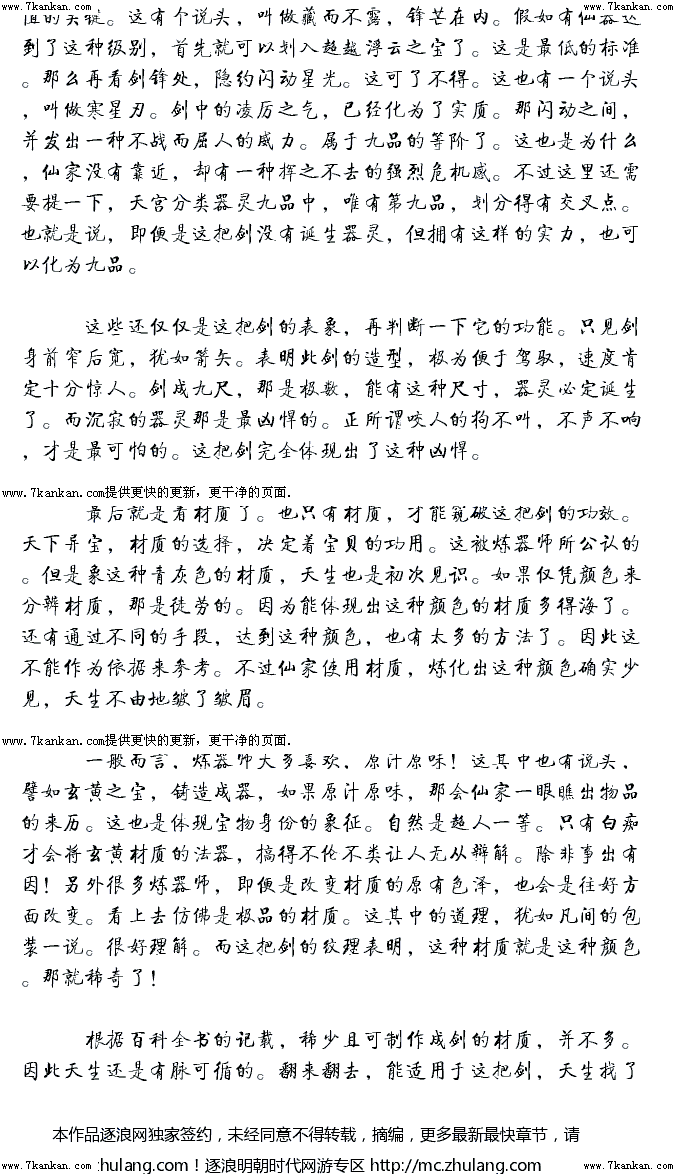 www.7kankan.com www.7kankan.com
值的关键。这有个说头，叫做藏而不露，锋芒在内。假如有仙器达
到了这种级别，首先就可以划入超越浮云之宝了。这是最低的标准
。那么再看剑锋处，隐约闪动星光。这可了不得。这也有一个说头
，叫做寒星刃。剑中的凌厉之气，已经化为了实质。那闪动之间，
并发出一种不战而屈人的威力。属于九品的等阶了。这也是为什么
，仙家没有靠近，却有一种挥之不去的强烈危机感。不过这里还需
要提一下，天宫分类器灵九品中，唯有第九品，划分得有交叉点。
也就是说，即便是这把剑没有诞生器灵，但拥有这样的实力，也可
以化为九品。
这些还仅仅是这把剑的表象，再判断一下它的功能。只见剑
身前窄后宽，犹如箭矢。表明此剑的造型，极为便于驾驭，速度肯
定十分惊人。剑成九尺，那是极数，能有这种尺寸，器灵必定诞生
了。而沉寂的器灵那是最凶悍的。正所谓咬人的狗不叫，不声不响
，才是最可怕的。这把剑完全体现出了这种凶悍。
www.7kankan.com提供更快的更新，更干净的页面.
最后就是看材质了。也只有材质，才能窥破这把剑的功效。
天下异宝，材质的选择，决定着宝贝的功用。这被炼器师所公认的
。但是象这种青灰色的材质，天生也是初次见识。如果仅凭颜色来
分辨材质，那是徒劳的。因为能体现出这种颜色的材质多得海了。
还有通过不同的手段，达到这种颜色，也有太多的方法了。因此这
不能作为依据来参考。不过仙家使用材质，炼化出这种颜色确实少
见，天生不由地皱了皱眉。
www.7kankan.com提供更快的更新，更干净的页面.
一般而言，炼器师大多喜欢，原汁原味！这其中也有说头，
譬如玄黄之宝，铸造成器，如果原汁原味，那会仙家一眼瞧出物品
的来历。这也是体现宝物身份的象征。自然是超人一等。只有白痴
才会将玄黄材质的法器，搞得不伦不类让人无从辩解。除非事出有
因！另外很多炼器师，即便是改变材质的原有色泽，也会是往好方
面改变。看上去仿佛是极品的材质。这其中的道理，犹如凡间的包
装一说。很好理解。而这把剑的纹理表明，这种材质就是这种颜色
。那就稀奇了！
根据百科全书的记载，稀少且可制作成剑的材质，并不多。
因此天生还是有脉可循的。翻来翻去，能适用于这把剑，天生找了
本作品逐浪网独家签约，未经同意不得转载，摘编，更多最新最快章节，请
www.7kankan.com zhulang.com！逐浪明朝时代网游专区 http://mc.zhulang.com www.7kankan.com